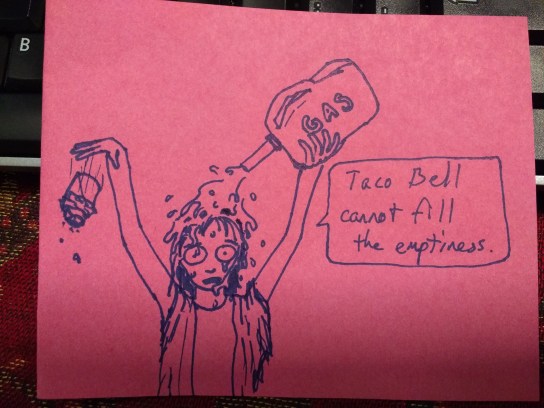 B
GAS
Taco Bell
cannot fill
the emptiness.